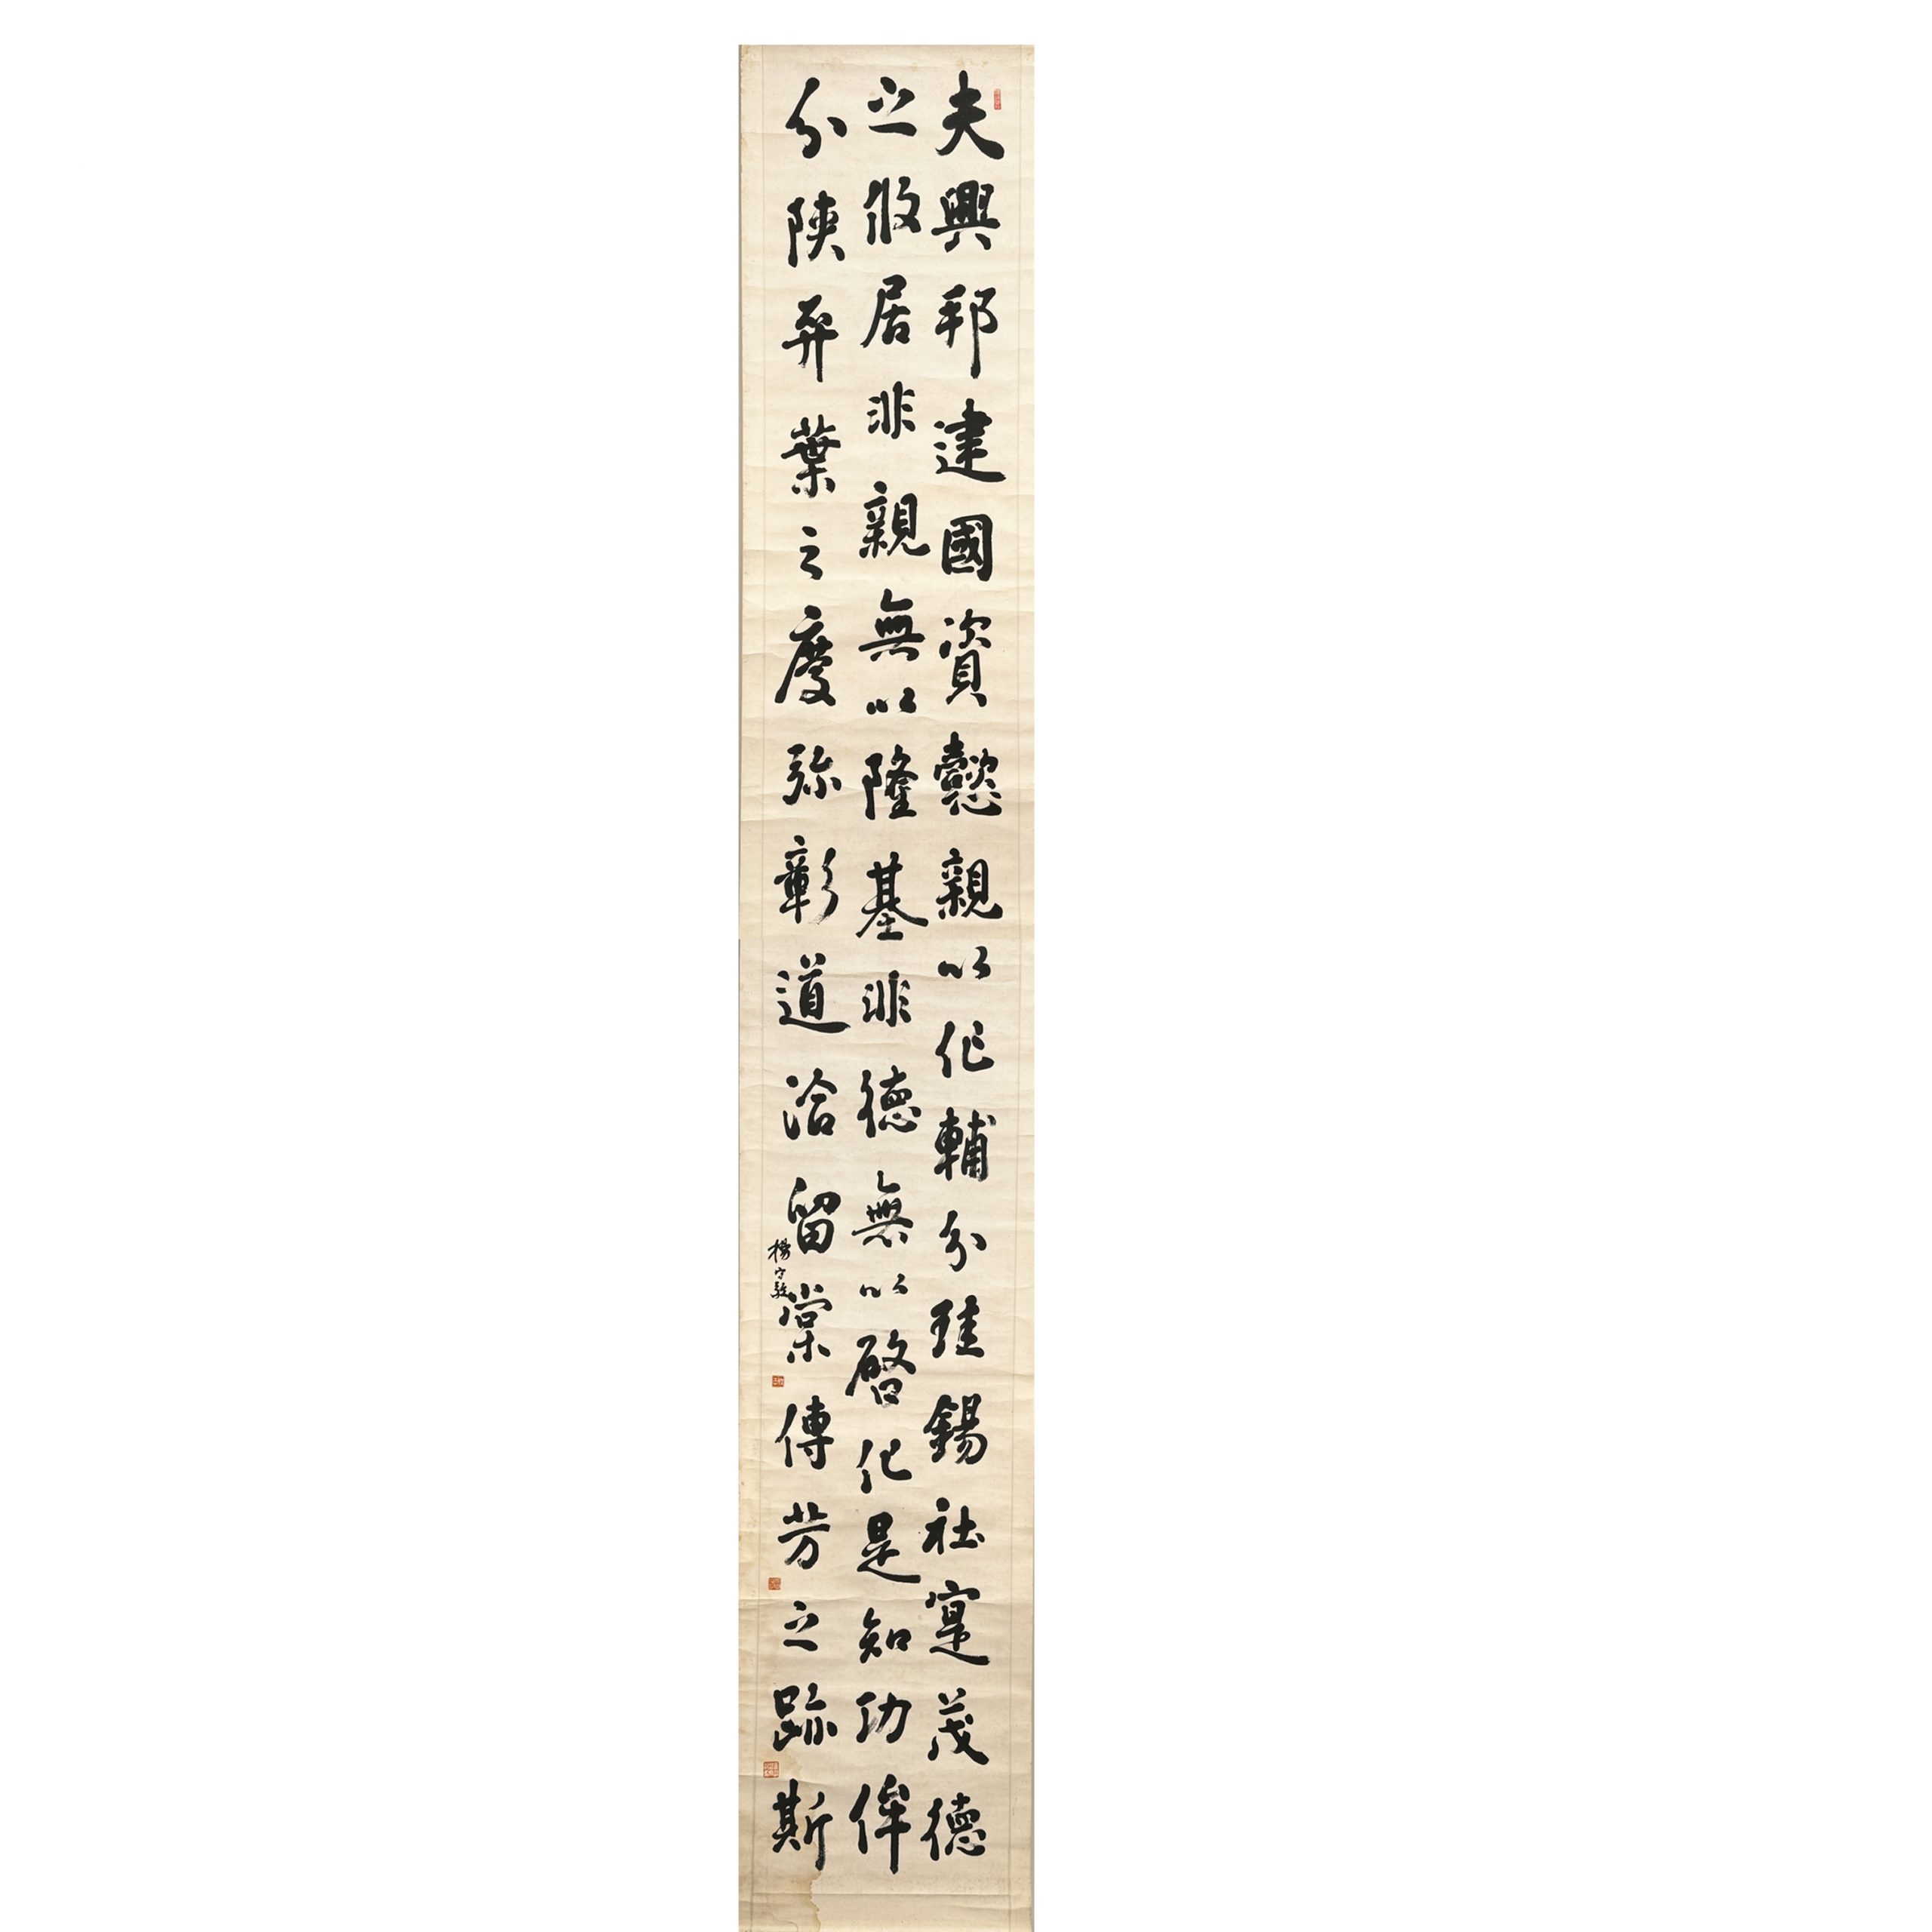 夫興邦建國資懿親以作輔分珪錫社寔茂德
之攸居非親無以隆基非德無以啓化是知功侔
分陝弈葉之慶弥彰道洽留棠傳芳之跡斯
楊守敬